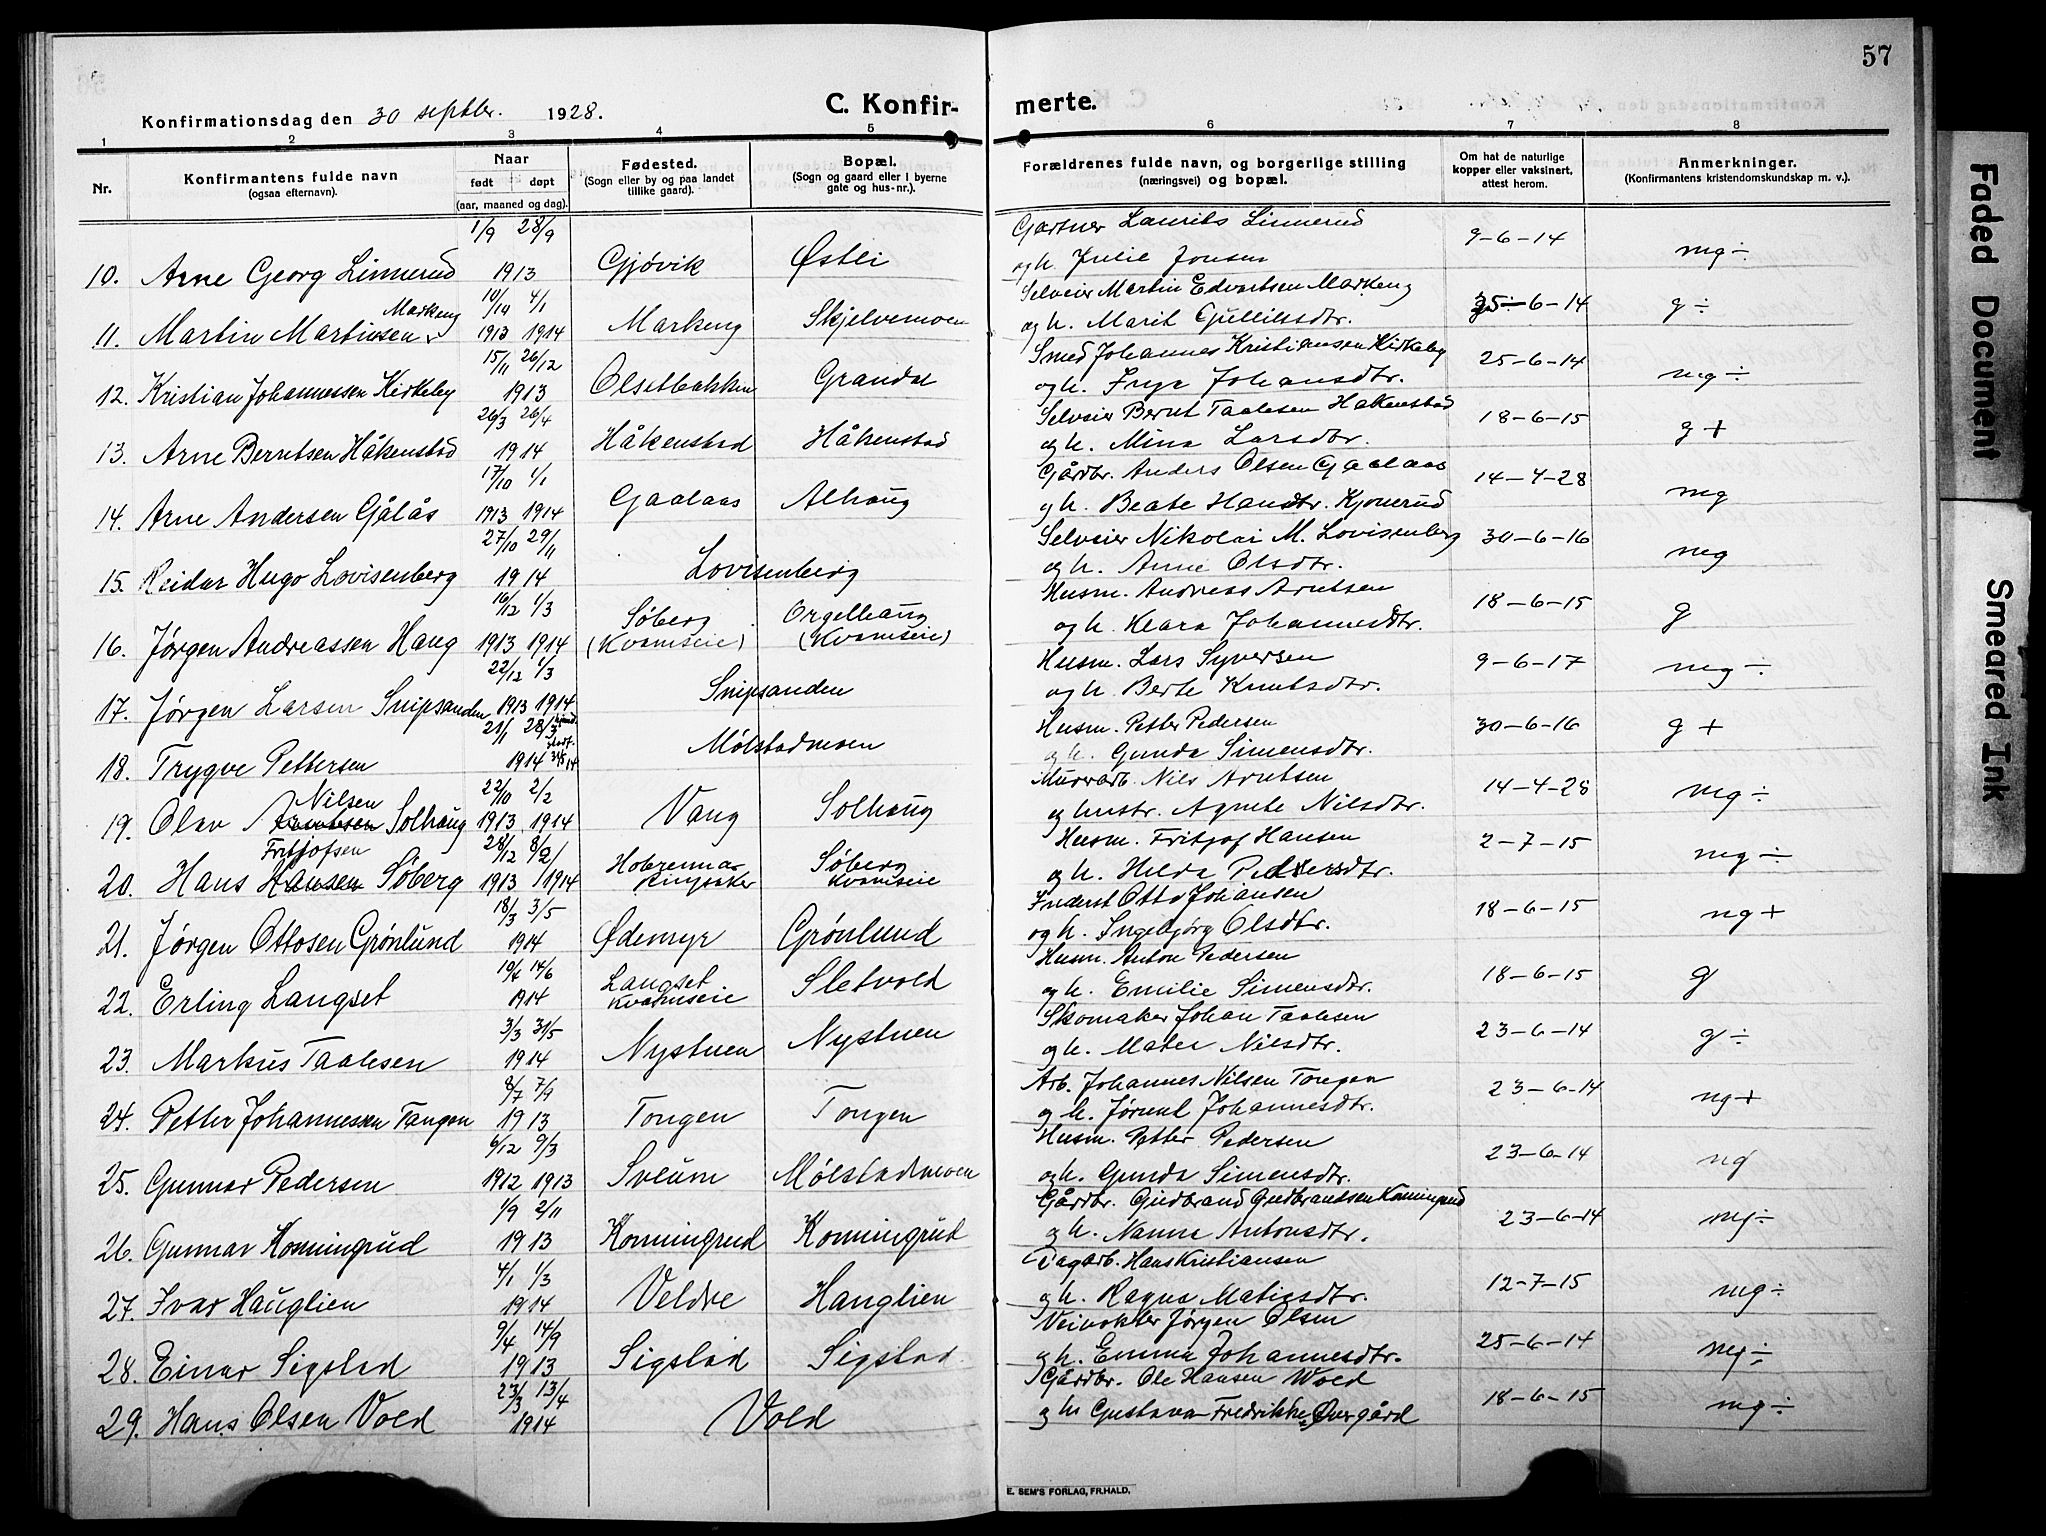 57
Konfirmationsdag den 30 septbr. 1928.
C. Konfirmerte.
1 2 3 4 5 6 7 8
Nr.
Konfirmantens fulde navn
(ogsaa efternavn).
Naar
født døpt
(aar, maaned og dag).
Fødested.
(Sogn eller by og paa landet
tillike gaard).
Bopæl.
(Sogn og gaard eller i byerne
gate og hus-nr.).
Forældrenes fulde navn, og borgerlige stilling
(næringsvei) og bopæl.
Om hat de naturlige
kopper eller vaksinert,
attest herom.
Anmerkninger.
(Konfirmantens kristendomskundskap m. v.).
1/9 28/9 Gartner Laurits Linnerud
10. Arne Georg Linnerud 1913 Gjøvik Østli og h. Julie Jonsen 9-6-14 mg ÷
Markeng 10/10 4/1 Selveier Martin Edvartsen Markeng
11. Martin Martinsen 1913 1914 Markeng Skjelvemoen og h. Marit Gulliksdtr. 25-6-14 g ÷
15/11 26/12 Smed Johannes Kristiansen Kirkeby
12. Kristian Johannessen Kirkeby 1913 Olsetbakken Grandal og h. Johansdtr. 25-6-14 mg ÷
26/3 26/4 Selveier Bernt Taalesen Hakenstad
13. Arne Berntsen Håkenstad 1914 Håkenstad Håkenstad og h. Mina Larsdtr. 18-6-15 g +
17/10 1/1 Gårdbr. Anders Olsen Gaalaas
14. Arne Andersen Gålås 1913 1914 Gaalaas Alhaug og h. Beate Hansdtr. Kjonerud 14-4-28 mg
27/10 29/11 Selveier Nikolai M. Lovisenberg
15. Reidar Hugo Lovisenberg 1914 Lovisenberg og h. Anne Olsdtr. 30-6-16 mg
16/12 1/3 Husm. Andreas Arntsen
16. Jørgen Andreassen Haug 1913 1914 Søberg (Kvamseie) Orgelhaug (Kvamseie) og h. Klara Johannesdtr. 18-6-15 g
22/12 1/3 Husm. Lars Syversen
17. Jørgen Larsen Snipsanden 1913 1914 Snipsanden og h. Berte Knutsdtr. 9-6-17 mg ÷
21/1 28/3 Husm. Petter Pedersen
18. Trygve Pettersen 1914 Mølstadmoen og h. Gunda Simensdtr. 30-6-16 g +
Nilsen 22/10 2/2 Murarb. Nils Arntsen
19. Olav Arntsen Solhaug 1913 1914 Vang Solhaug og hustr. Agnete Nilsdtr. 14-4-28 mg ÷
Fritjofsen 28/12 8/2 Husm. Fritjof Hansen
20. Hans Hansen Søberg 1913 1914 Ringsaker Søberg Kvamseie og h. Hilda Pedersdtr. 2-7-15 mg ÷
18/3 3/5 Inderst Otto Johansen
21. Jørgen Ottosen Grønlund 1914 Ødemyr Grønlund og h. Ingebjørg Olsdtr. 18-6-15 ng +
10/4 14/6 Husm. Anton Pedersen
22. Erling Langset 1914 Langset Kvamseie Sletvold og h. Emilie Simensdtr. 18-6-15 g
3/3 31/5 Skomaker Johan Taalesen
23. Markus Taalesen 1914 Nystuen Nystuen og h. Mater Nilsdtr. 23-6-14 g ÷
8/7 7/9 Arb. Johannes Nilsen Tongen
24. Petter Johannessen Tangen 1913 Tongen Tongen og h. Jørund Johannesdtr. 23-6-14 ng +
6/12 9/3 Husm. Petter Pedersen
25. Gunnar Pedersen 1912 1913 Sveum Mølstadmoen og h. Gunda Simensdtr. 23-6-14 ng
1/9 2/11 Gårdbr. Gudbrand Gudbrandsen Konningrud
26. Gunnar Konningrud 1913 Konningrud Konningrud og h. Nanna Antonsdtr. 23-6-14 mg ÷
4/1 1/3 Dagarb. Hans Kristiansen
27. Ivar Hauglien 1914 Veldre Hauglien og h. Ragna Matiasdtr. 12-7-15 mg ÷
9/4 14/9 Veivokter Jørgen Olsen
28. Einar Sigstad 1913 Sigstad Sigstad og h. Emma Johannesdtr. 25-6-14 mg ÷
23/3 13/4 Gårdbr. Ole Hansen Wold
29. Hans Olsen Vold 1914 Vold og h. Gustava Fredrikke Øvergård 18-6-15 mg ÷
E. SEM'S FORLAG, FR.HALD.
Faded Document
Smeared Ink